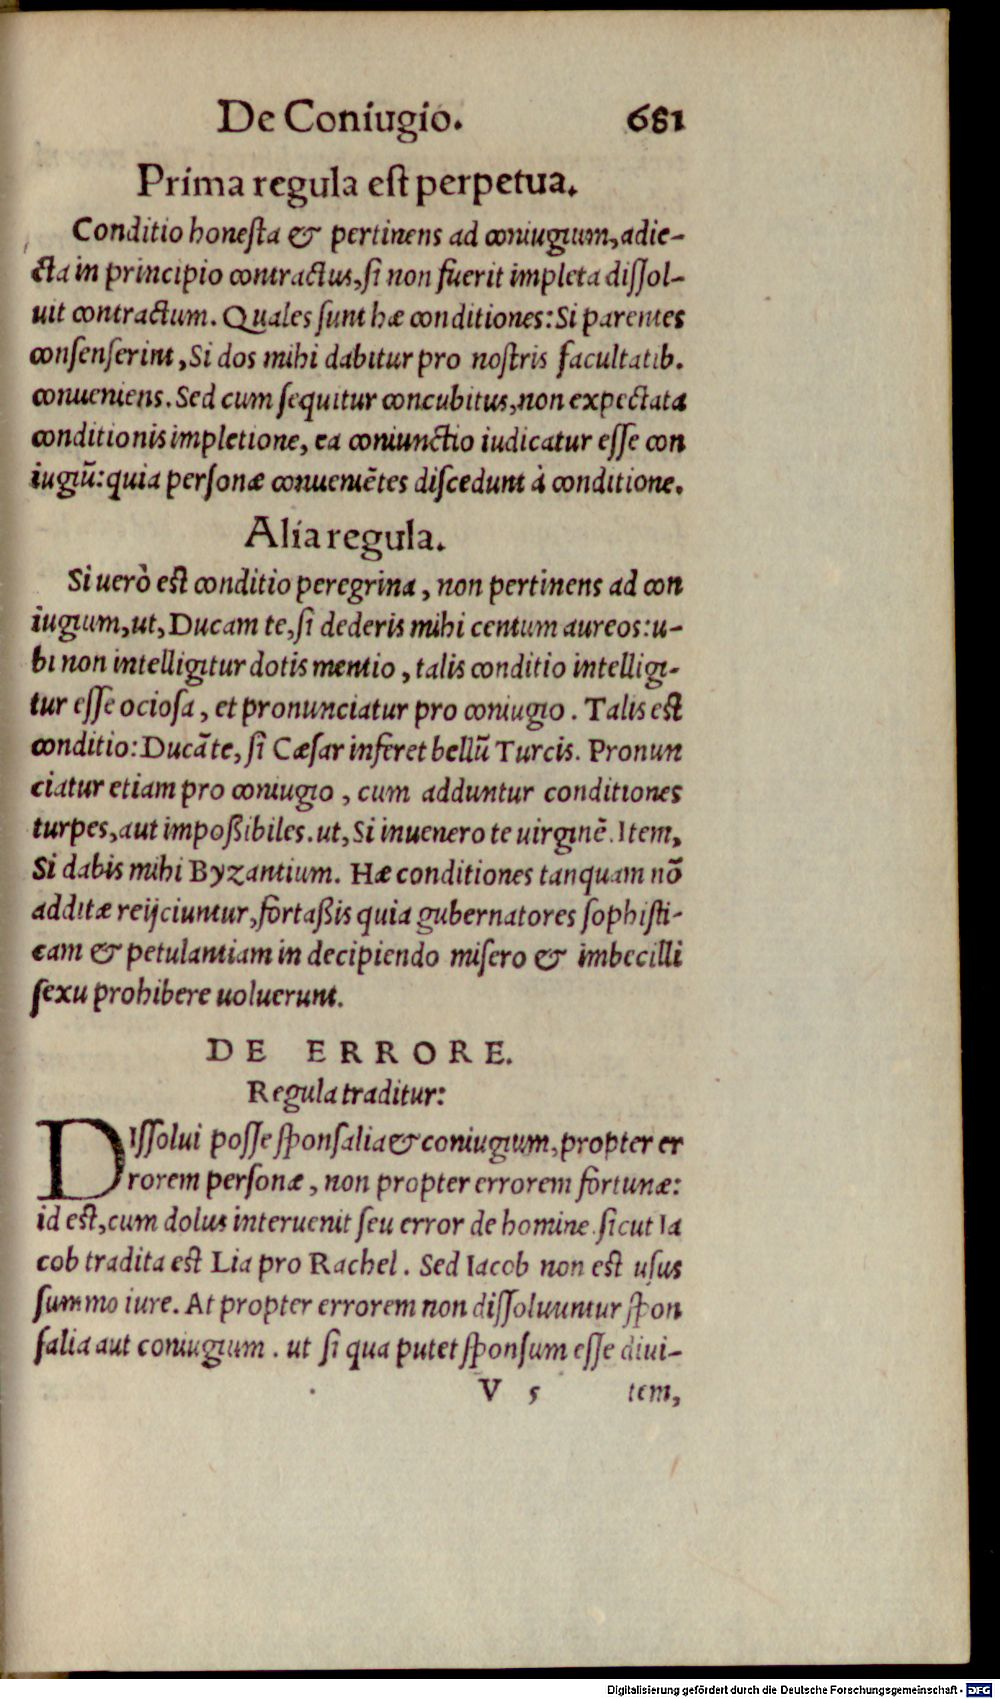 De Coniugio. 681
Prima regula est perpetua.
Conditio honesta & pertinens ad coniugium, adie-
cta in principio contractus, si non fuerit impleta dissol-
uit contractum. Quales sunt hæ conditiones: Si parentes
consenserint, Si dos mihi dabitur pro nostris facultatib.
conueniens. Sed cum sequitur concubitus, non expectata
conditionis impletione, ea coniunctio iudicatur esse con
iugiũ: quia personæ conueniẽtes discedunt à conditione.
Alia regula.
Si uerò est conditio peregrina, non pertinens ad con
iugium, ut, Ducam te, si dederis mihi centum aureos: u-
bi non intelligitur dotis mentio, talis conditio intelligi-
tur esse ociosa, et pronunciatur pro coniugio. Talis est
conditio: Ducã te, si Cæsar inferet bellũ Turcis. Pronun
ciatur etiam pro coniugio, cum adduntur conditiones
turpes, aut impoßibiles. ut, Si inuenero te uirginẽ. Item,
Si dabis mihi Byzantium. Hæ conditiones tanquam nõ
additæ reijciuntur, fortaßis quia gubernatores sophisti-
cam & petulantiam in decipiendo misero & imbecilli
sexu prohibere uoluerunt.
DE ERRORE.
Regula traditur:
DIssolui posse sponsalia & coniugium, propter er
rorem personæ, non propter errorem fortunæ:
id est, cum dolus interuenit seu error de homine. sicut Ia
cob tradita est Lia pro Rachel. Sed Iacob non est usus
summo iure. At propter errorem non dissoluuntur spon
salia aut coniugium. ut si qua putet sponsum esse diui-
V 5 tem,
Digitalisierung gefördert durch die Deutsche Forschungsgemeinschaft - DFG